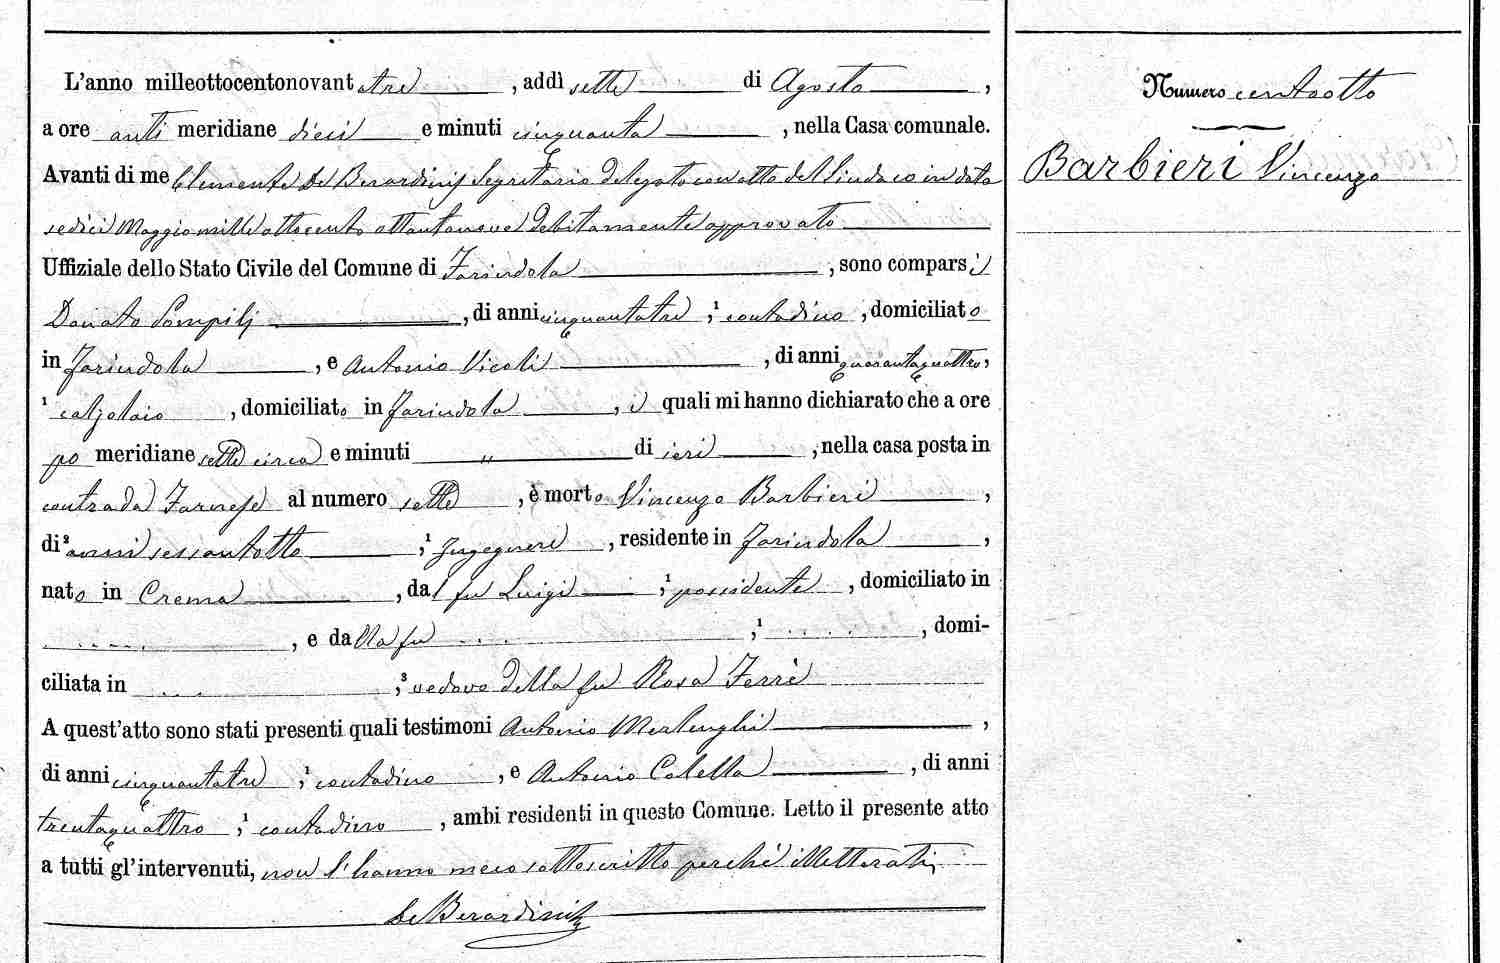 L'anno milleottocentonovantatre, addì sette di Agosto,
a ore anti meridiane dieci e minuti cinquanta, nella Casa comunale.
Avanti di me Clemente De Berardinis Segretario delegato con atto del Sindaco in data
sedici Maggio mille ottocento ottantanove debitamente approvato
Uffiziale dello Stato Civile del Comune di Farindola, sono comparsi
Donato Pompilj, di anni cinquantatre, ¹ contadino, domiciliato
in Farindola, e Antonio Vicoli, di anni quarantaquattro,
¹ calzolaio, domiciliato in Farindola, i quali mi hanno dichiarato che a ore
po meridiane sette circa e minuti " di ieri, nella casa posta in
contrada Farnese al numero sette, è morto Vincenzo Barbieri,
di ² anni sessantotto, ¹ Ingegnere, residente in Farindola,
nato in Crema, dal fu Luigi, ¹ possidente, domiciliato in
....., e dalla fu ...., ¹ ....., domi-
ciliata in ...., ³ vedovo della fu Rosa Ferrè
A quest'atto sono stati presenti quali testimoni Antonio Merlenghi,
di anni cinquantatre, ¹ contadino, e Antonio Colella, di anni
trentaquattro, ¹ contadino, ambi residenti in questo Comune. Letto il presente atto
a tutti gl'intervenuti, non l'hanno meco sottoscritto perché illetterati
De Berardinis
Numero centootto
Barbieri Vincenzo